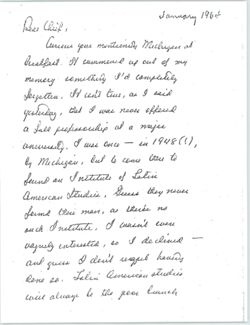 January 1964
Dear Chief,
Curious your mentioning Michigan at
breakfast. It summoned up out of my
memory something I'd completely
forgotten. It isn't true, as I said
yesterday, that I was never offered
a full professorship at a major
university. I was once — in 1948(!),
by Michigan, but to come there to
found an Institute of Latin
American Studies. Guess they never
found their man, as there's no
such Institute. I wasn't even
vaguely interested, so I declined —
and guess I don't regret having
done so. Latin American studies
will always be the poor